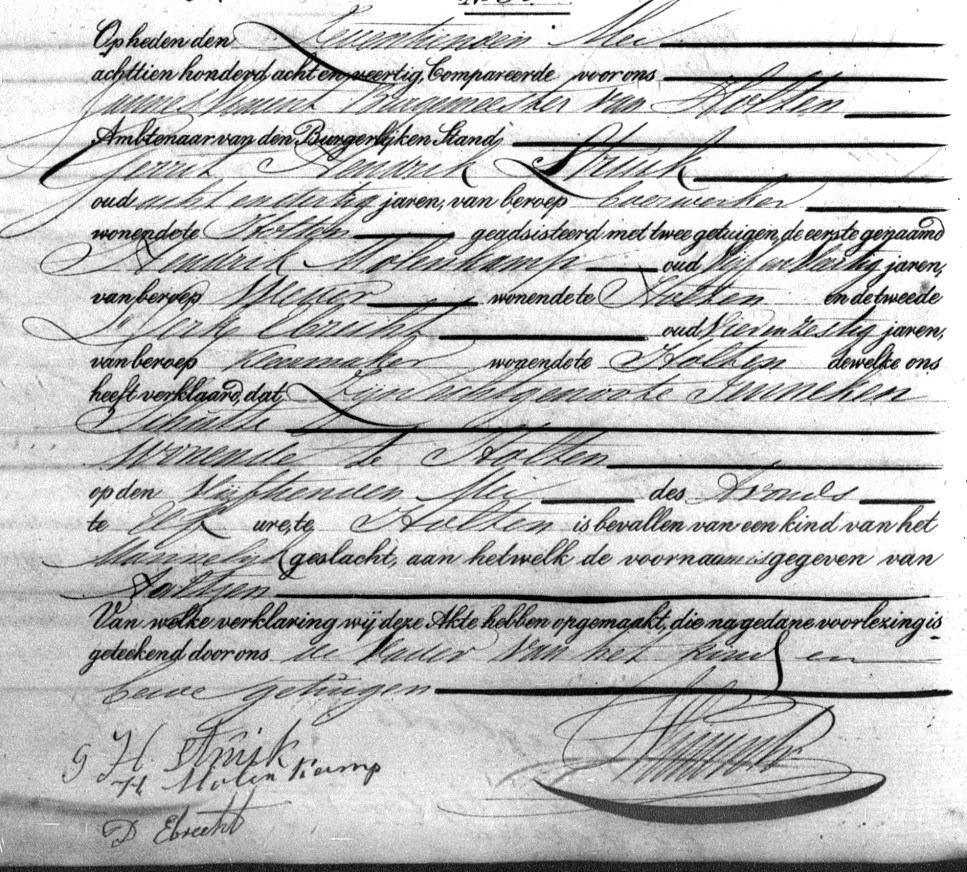 Op heden den Zeventienden Mei
achttien honderd acht en veertig, Compareerde voor ons
Burgemeester van Holten
Ambtenaar van den Burgerlijken Stand
Gerrit Hendrik Struik
oud acht en dertig jaren, van beroep Boerwerker
wonende te Holten geadsisteerd met twee getuigen, de eerste genaamd
Hendrik Molenkamp oud Vijf en Veertig jaren,
van beroep wonende te Holten en de tweede
Derk Ebrecht oud Vier en Zestig jaren,
van beroep wonende te Holten dewelke ons
heeft verklaard, dat Zijne echtgenoote Janneken
Schutte
wonende te Holten
op den Vijftienden Mei des Avonds
te Elf ure, te Holten is bevallen van een kind van het
Mannelijk geslacht, aan hetwelk de voornaam is gegeven van
Van welke verklaring wij deze Akte hebben opgemaakt, die na gedane voorlezing is
geteekend door ons de Vader van het kind en
beide getuigen
G H Struik
H Molenkamp
D Ebrecht